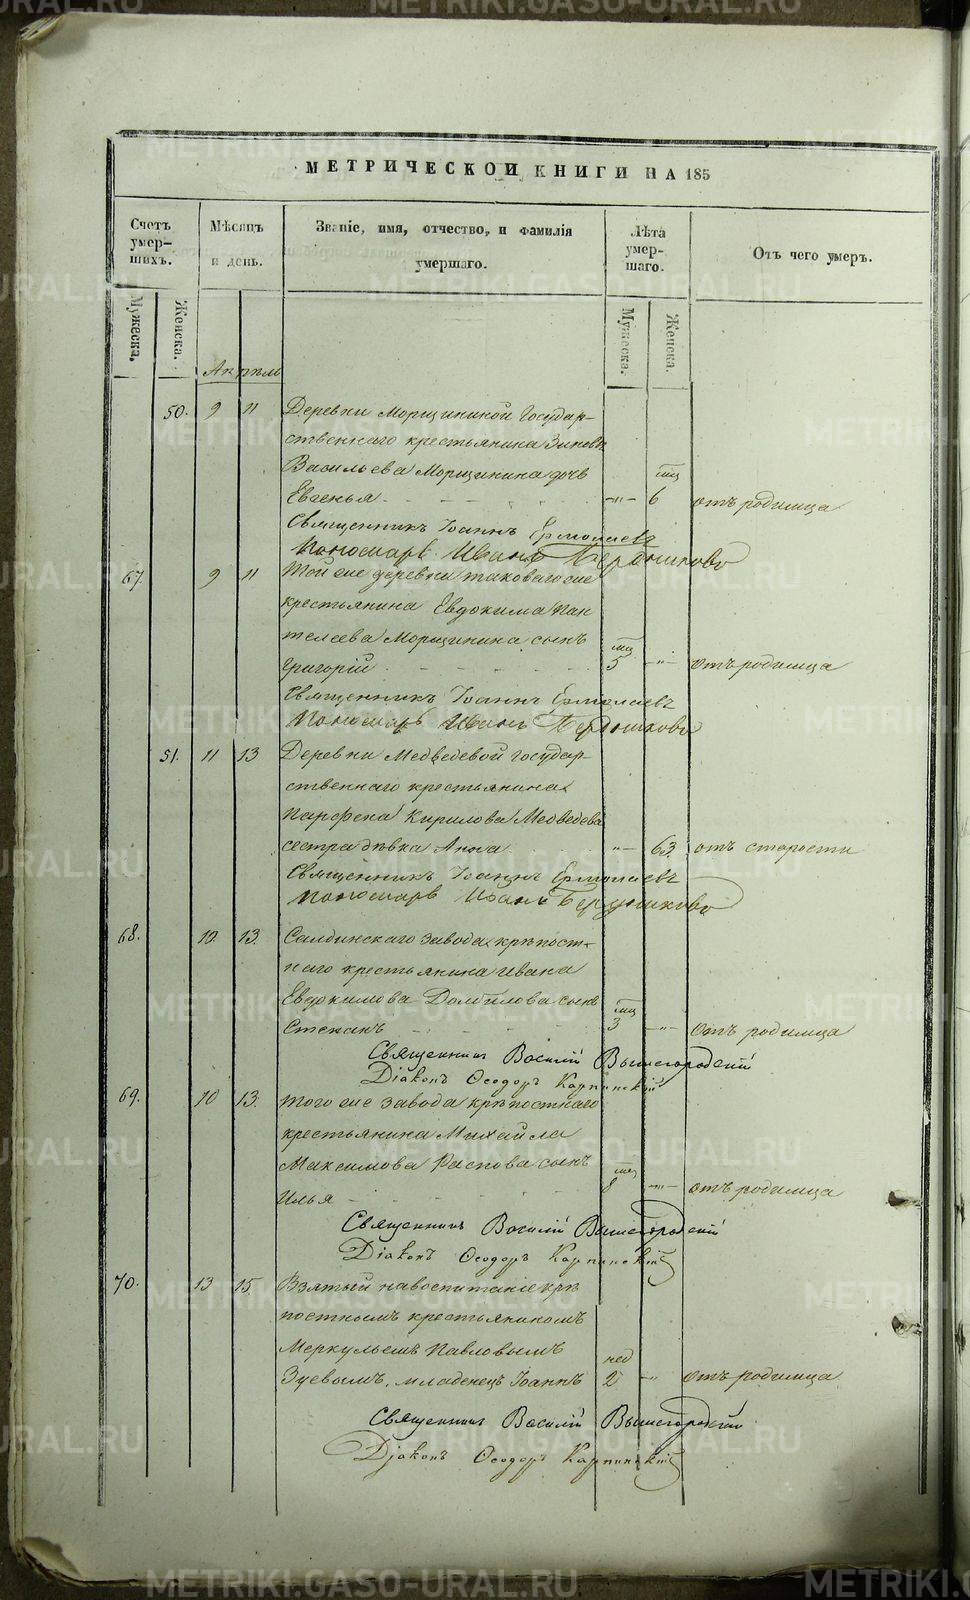 МЕТРИЧЕСКОЙ КНИГИ НА 185
Счетъ умерshихъ.
Мѣсяцъ и день.
Званіе, имя, отчество, и фамилія умершаго.
Лѣта умершаго.
Отъ чего умеръ.
Мужеска.
Женска.
Мужеска.
Женска.
Апрѣль
50. 9 11 Деревни Морщининой Государ-
ственнаго крестьянина
Васильева Морщинина дочь мц
Евгенья - - - - -"- 6 отъ родимца
Священникъ Іоаннъ Ермолаевъ
Пономарь Иванъ Бердниковъ
67. 9 11 Той же деревни таковаго же
крестьянина Евдокима Пан
телеева Морщинина сынъ мц
Григорій - - - - - 5 -"- отъ родимца
Священникъ Іоаннъ Ермолаевъ
Пономарь Иванъ
51. 11 13 Деревни Медведевой Государ-
ственнаго крестьянина
Парфена Кирилова Медведева
сестра дѣвка Анна "- 63. отъ старости
Священникъ Іоаннъ Ермолаевъ
Пономарь Иванъ
68. 10 13. Салдинскаго завода крѣпост-
наго крестьянина Ивана
Евдокимова сынъ мц
Степанъ - - - - - 3 -"- Отъ родимца
Священникъ Василій Вышегородскій
Діаконъ Ѳеодоръ Карпинскій
69. 10 13. Того же завода крѣпостнаго
крестьянина Михайла
Максимова сынъ мц
Илья - - - - - 8 -"- отъ родимца
Священникъ Василій Вышегородскій
Діаконъ Ѳеодоръ Карпинскій
70. 13 15. Взятый на воспитаніе крѣ
постнымъ крестьяниномъ
Меркульемъ Павловымъ нед
Зуевымъ, младенецъ Іоаннъ 2 -"- отъ родимца
Священникъ Василій Вышегородскій
Діаконъ Ѳеодоръ Карпинскій
METRIKI.GASO-URAL.RU